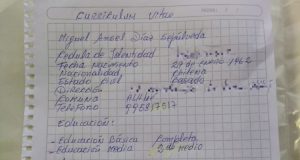 Curriculum Vitae
Miguel Angel Díaz Sepúlveda
Cedula de Identidad
Fecha Nacimiento 29 de enero 1962
Nacionalidad Chilena
Estado civil Casado
Dirección
Comuna
Teléfono 995817517
Educación:
- Educación Básica Completa
- Educación Media 2º medio